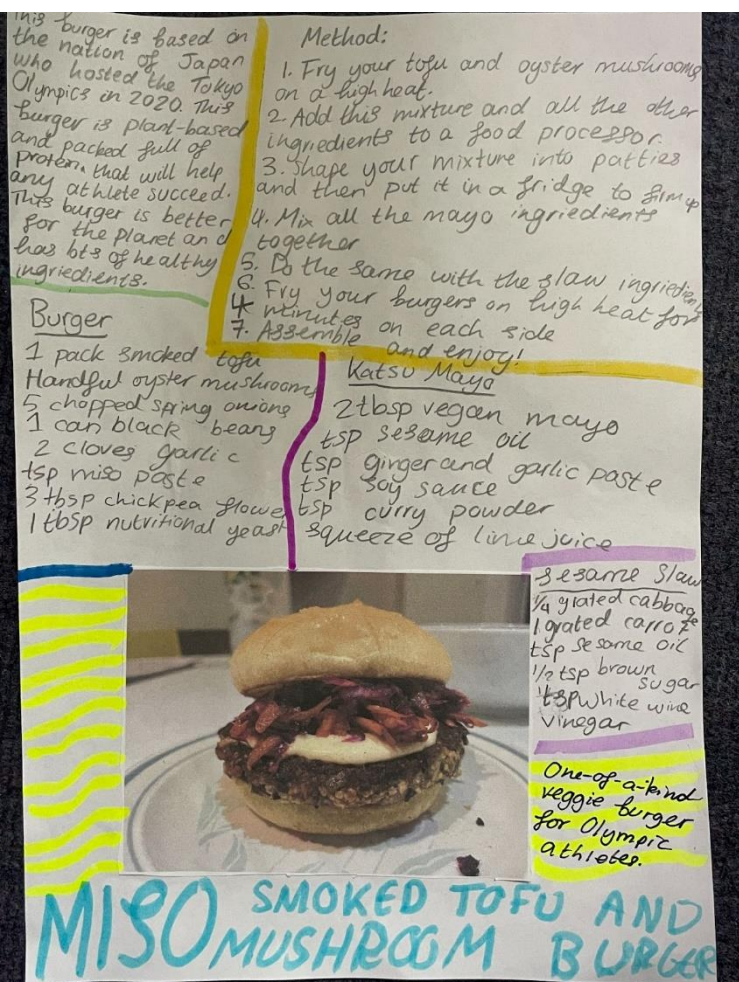 This burger is based on
the nation of Japan
who hosted the Tokyo
Olympics in 2020. This
burger is plant-based
and packed full of
Protein, that will help
any athlete succeed.
This burger is better
for the planet and
has lots of healthy
ingriedients.
Method:
1. Fry your tofu and oyster mushrooms
on a high heat.
2. Add this mixture and all the other
ingriedients to a food processor.
3. Shape your mixture into patties
and then put it in a fridge to firm up
4. Mix all the mayo ingriedients
together
5. Do the same with the slaw ingriedients
6. Fry your burgers on high heat for
4 minutes on each side
7. Assemble and enjoy!
Burger
1 pack smoked tofu
Handful oyster mushrooms
5 chopped spring onions
1 can black beans
2 cloves garlic
tsp miso paste
3 tbsp chickpea flower
1 tbsp nutritional yeast
Katsu Mayo
2tbsp vegan mayo
tsp sesame oil
tsp ginger and garlic paste
tsp soy sauce
tsp curry powder
squeeze of lime juice
Sesame Slaw
1/4 grated cabbage
1 grated carrot
tsp sesame oil
1/2 tsp brown
sugar
1 tsp white wine
vinegar
One-of-a-kind
veggie burger
for Olympic
athletes.
MISO SMOKED TOFU AND
MUSHROOM BURGER